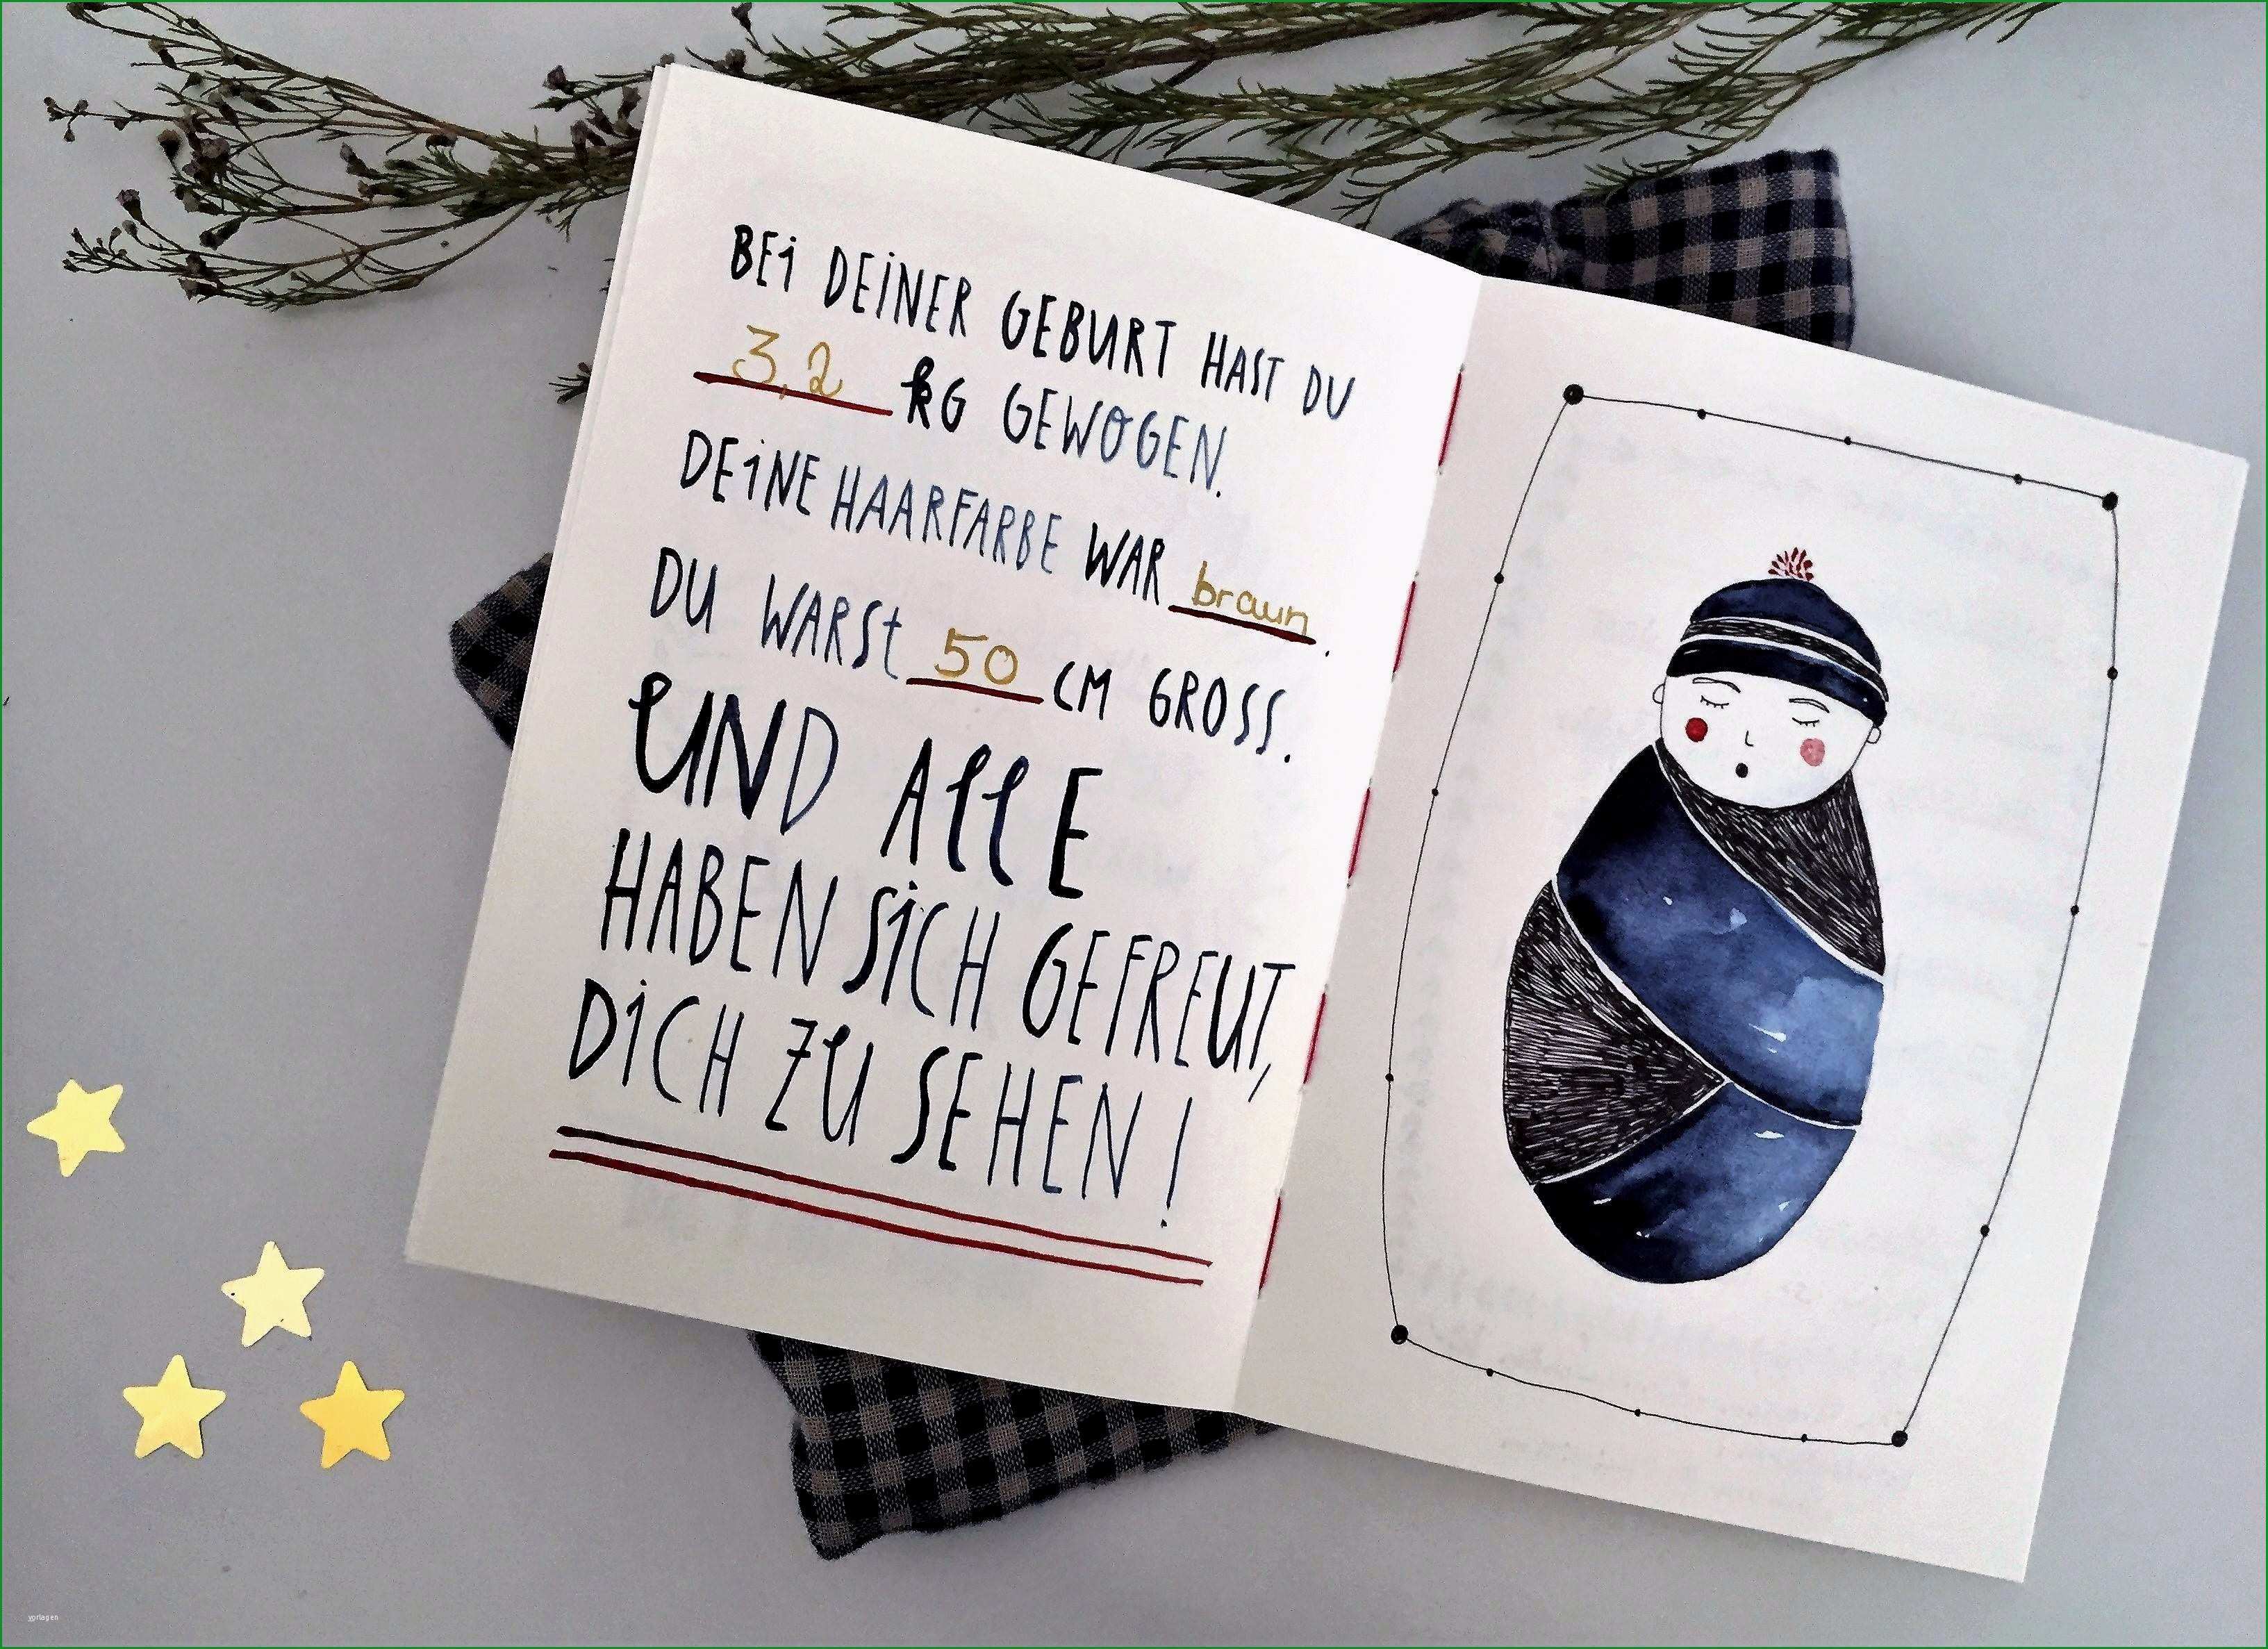 BEi DEiNER GEBURT HAST DU
3,2 KG GEWOGEN.
DEiNE HAARFARBE WAR braun.
DU WARSt 50 CM GROSS.
UND AllE
HABEN SiCH GEFREUT,
DiCH ZU SEHEN!
vorlagen